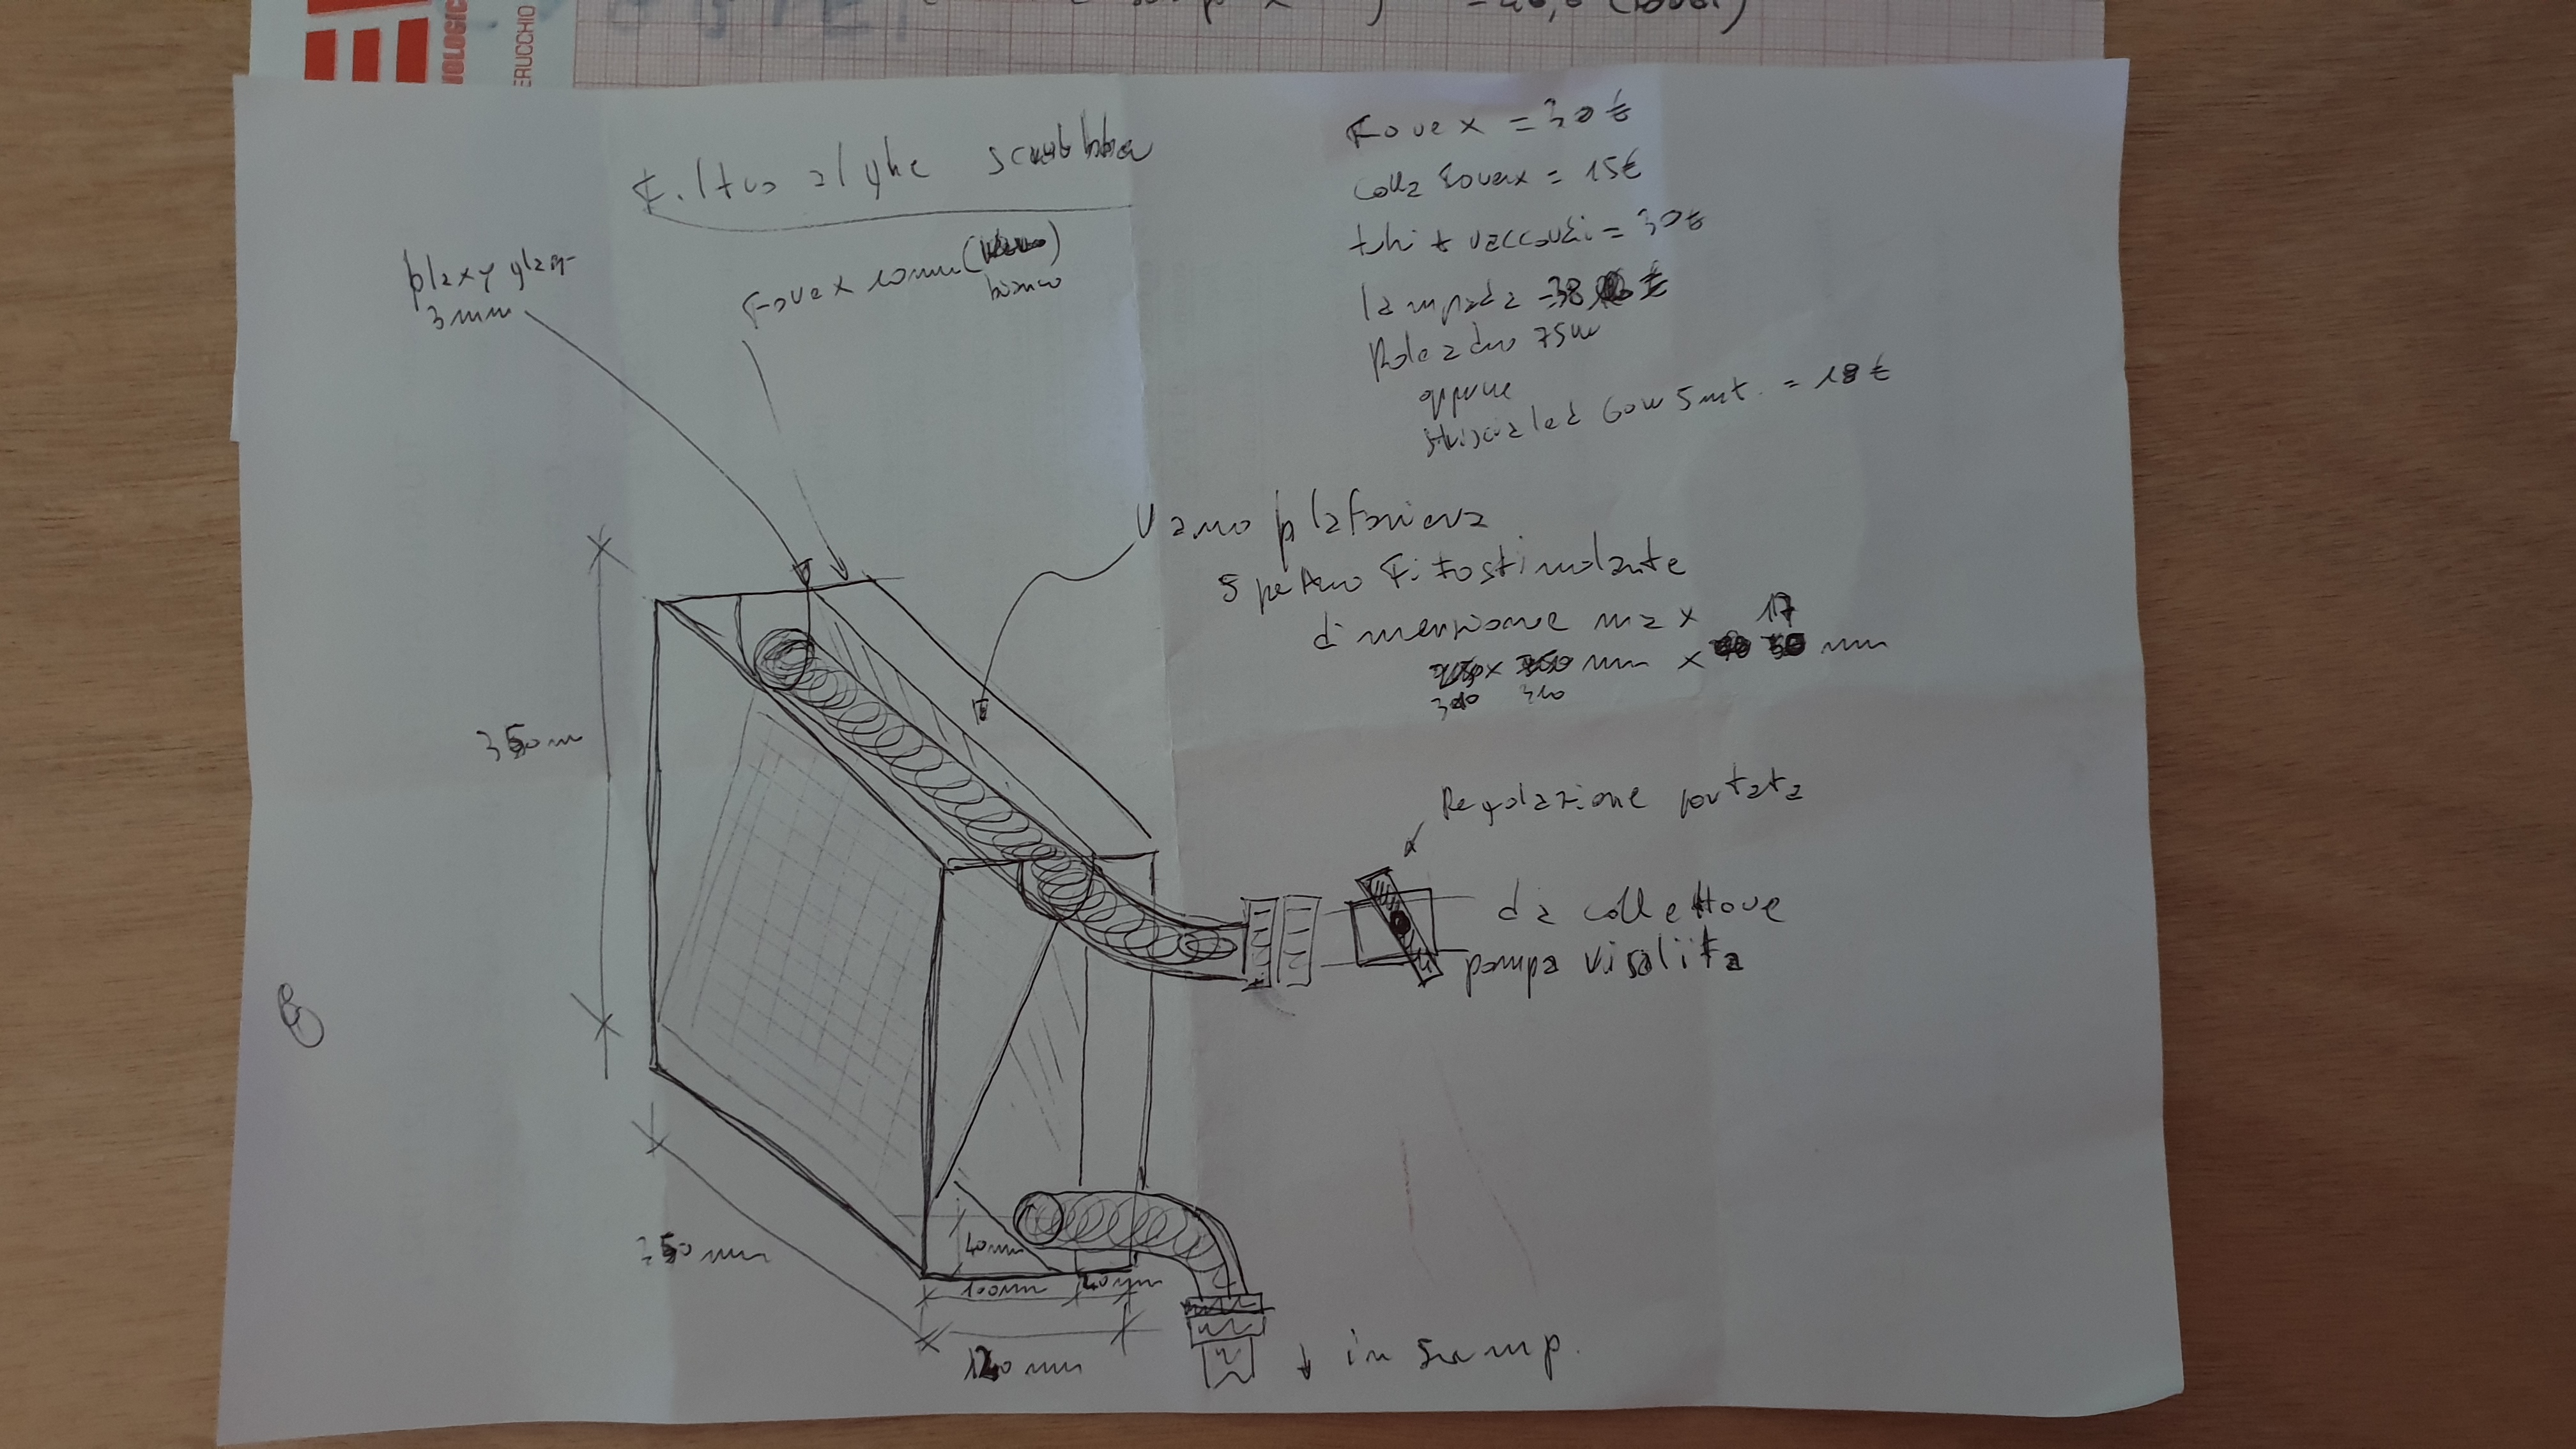 NOLOGIC
ERUCCHIO
Filtro alghe scrubber
Forex = 30 €
colla Forex = 15 €
tubi + raccordi = 30 €
lampada = 38 €
Roleadro 75W
oppure
striscia led 60W 5 mt. = 18 €
plexy glas
3 mm
Forex 10 mm (
bianco
Vano plafoniera
spettro Fitostimolante
dimensione max 17
mm x mm
310 310
350 m
Regolazione portata
da collettore
pompa risalita
350 mm
40 mm
100 mm
120 mm
↓ in sump.